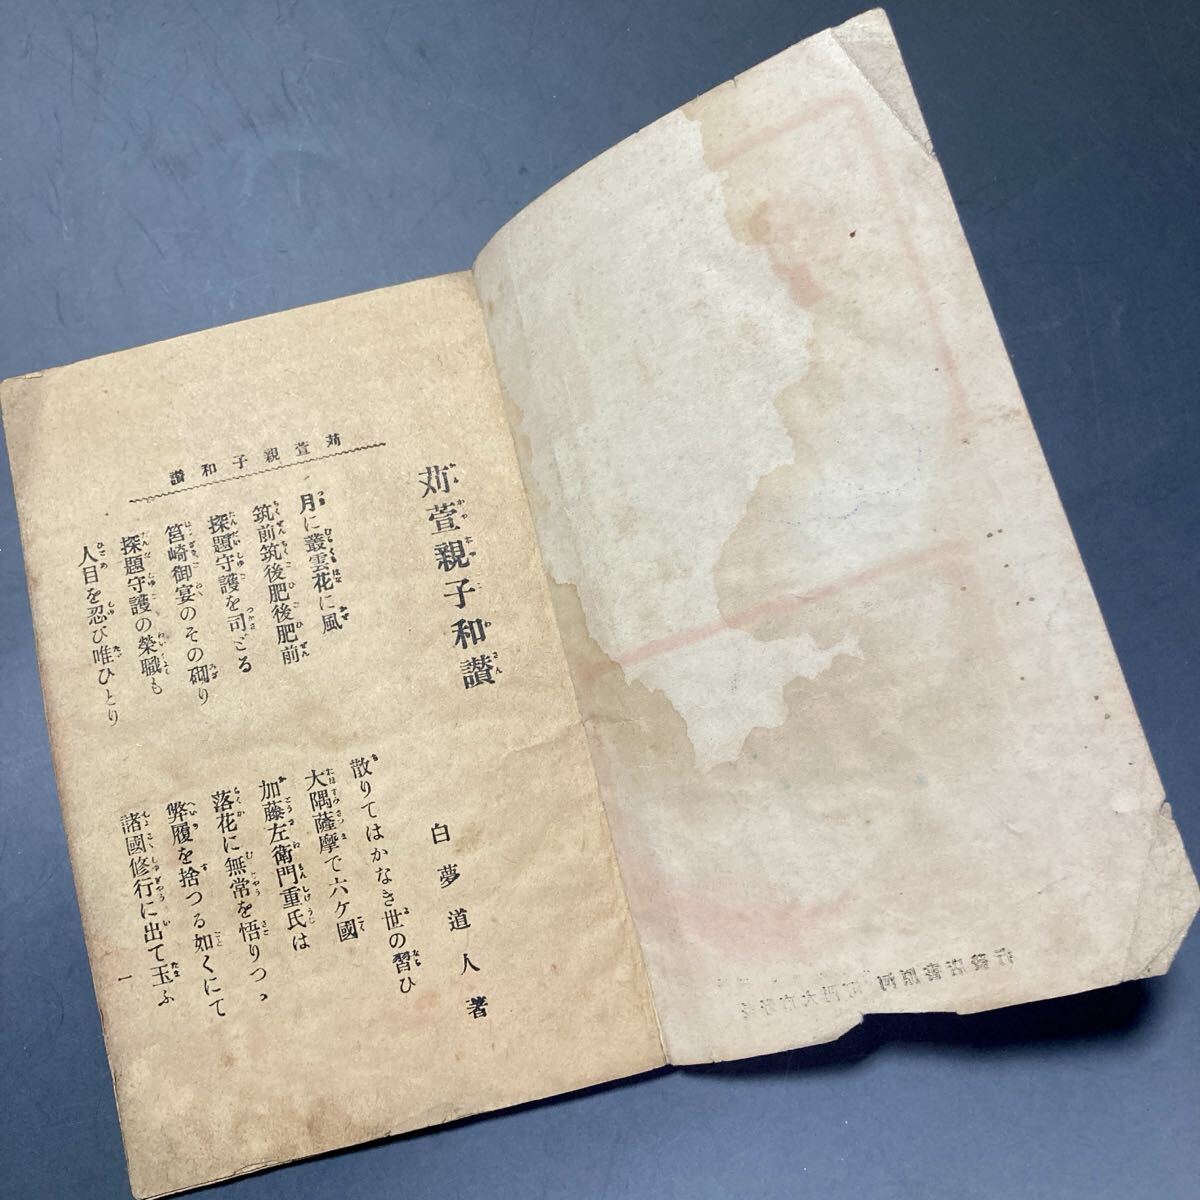 苅萱親子和讃
白夢道人著
月に叢雲花に風
散りてはかなき世の習ひ
筑前筑後肥後肥前
大隅薩摩で六ケ國
探題守護を司どる
加藤左衛門重氏は
筥崎御宴のその砌り
落花に無常を悟りつゝ
探題守護の榮職も
弊履を捨つる如くにて
人目を忍び唯ひとり
諸國修行に出て玉ふ
苅萱親子和讃
一
河原書店發行